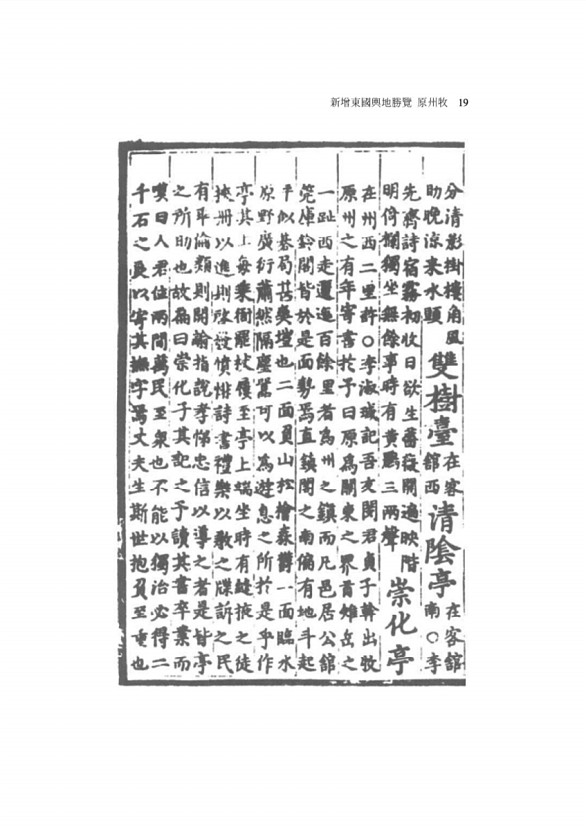 新增東國輿地勝覽 原州牧 19
分清影掛樓角風
助晩凉來水顥
雙樹臺
在客
館西
清陰亭
在客館
南○李
先齋詩宿霧初收日欲生薔薇開遍映階
明倚欄獨坐無餘事時有黃鸝三兩聲
崇化亭
在州西二里許○李淑瑊記吾友閔君貞子幹出牧
原州之有年寄書扵予曰原爲關東之界首雉岳之
一趾西走邐迤百餘里者為州之鎭而凡邑居公館
筦庫鈴閤皆於是面勢焉直鎭閣之南偏有地斗起
平似碁局甚奥塏也二面負山松檜森欝一面臨水
原野廣衍蕭然隔塵囂可以為遊息之所於是乎作
亭其上每乗衙罷杖屨至亭上端坐時有縫掖之徒
挾册以進則啓發憤悱詩書禮樂以敎之牒訴之民
有乖倫類則開諭指說孝悌忠信以導之者是皆亭
之所助也故扁曰崇化子其記之予讀其書卒業而
嘆曰人君位兩間萬民至衆也不能以獨治必得二
千石之良以寄其撫字焉丈夫生斯世抱負至重也